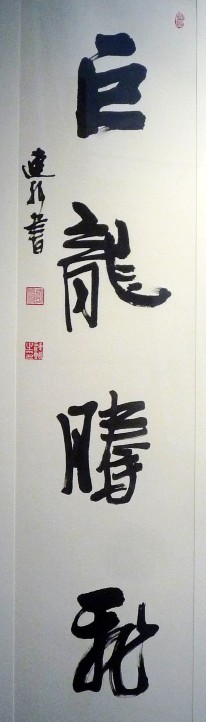 巨龍騰飛
書